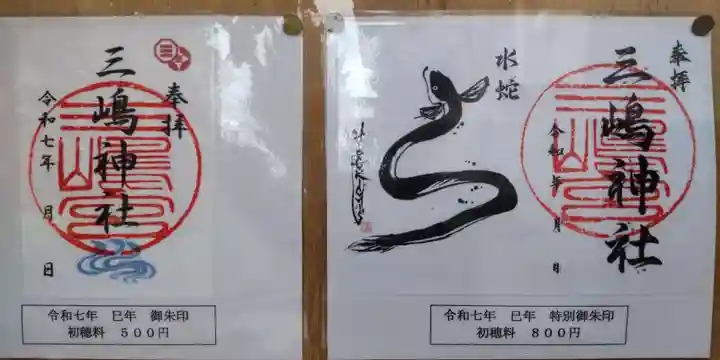 奉拝
三嶋神社
令和七年 月 日
令和七年 巳年 御朱印
初穂料 500円
奉拝
三嶋神社
令和 年 月 日
水蛇
令和七年 巳年 特別御朱印
初穂料 800円